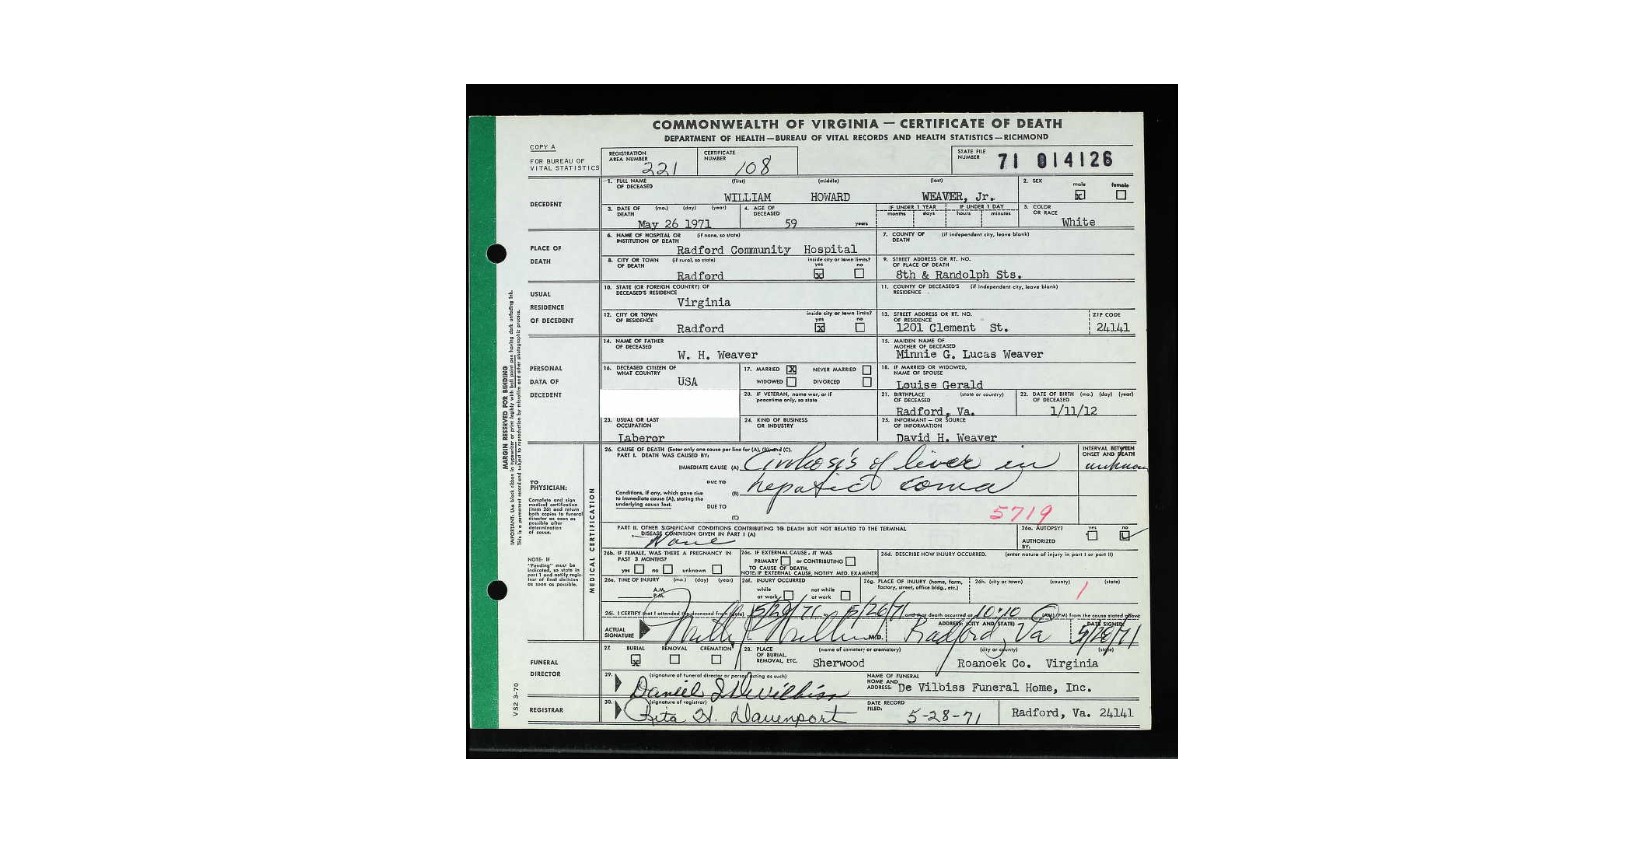 COMMONWEALTH OF VIRGINIA — CERTIFICATE OF DEATH
DEPARTMENT OF HEALTH—BUREAU OF VITAL RECORDS AND HEALTH STATISTICS—RICHMOND
COPY A
FOR BUREAU OF VITAL STATISTICS
REGISTRATION AREA NUMBER 221
CERTIFICATE NUMBER 108
STATE FILE NUMBER 71 014126
DECEDENT
1. FULL NAME OF DECEASED (first) (middle) (last)
WILLIAM HOWARD WEAVER, Jr.
2. SEX male female
3. DATE OF DEATH (mo.) (day) (year) May 26 1971
4. AGE OF DECEASED 59 years
IF UNDER 1 YEAR months days
IF UNDER 1 DAY hours minutes
5. COLOR OR RACE White
PLACE OF DEATH
6. NAME OF HOSPITAL OR INSTITUTION OF DEATH (if none, so state)
Radford Community Hospital
7. COUNTY OF DEATH (if independent city, leave blank)
8. CITY OR TOWN OF DEATH (if rural, so state) Radford
inside city or town limits? yes no
9. STREET ADDRESS OR RT. NO. OF PLACE OF DEATH
8th & Randolph Sts.
USUAL RESIDENCE OF DECEDENT
10. STATE (OR FOREIGN COUNTRY) OF DECEASED'S RESIDENCE
Virginia
11. COUNTY OF DECEASED'S RESIDENCE (if independent city, leave blank)
12. CITY OR TOWN OF RESIDENCE Radford
inside city or town limits? yes no
13. STREET ADDRESS OR RT. NO. OF RESIDENCE
1201 Clement St.
ZIP CODE 24141
PERSONAL DATA OF DECEDENT
14. NAME OF FATHER OF DECEASED
W. H. Weaver
15. MAIDEN NAME OF MOTHER OF DECEASED
Minnie G. Lucas Weaver
16. DECEASED CITIZEN OF WHAT COUNTRY
USA
17. MARRIED NEVER MARRIED
WIDOWED DIVORCED
18. IF MARRIED OR WIDOWED, NAME OF SPOUSE
Louise Gerald
20. IF VETERAN, name war, or if peacetime only, so state
21. BIRTHPLACE OF DECEASED (state or country)
Radford, Va.
22. DATE OF BIRTH (mo.) (day) (year) OF DECEASED
1/11/12
23. USUAL OR LAST OCCUPATION
Laberor
24. KIND OF BUSINESS OR INDUSTRY
25. INFORMANT — OR SOURCE OF INFORMATION
David H. Weaver
MARGIN RESERVED FOR BINDING
TO PHYSICIAN:
Complete and sign medical certification
MEDICAL CERTIFICATION
26. CAUSE OF DEATH (Enter only one cause per line for (A), (B) and (C).
PART I. DEATH WAS CAUSED BY:
IMMEDIATE CAUSE (A) Cirrhosis of liver in
INTERVAL BETWEEN ONSET AND DEATH
unknown
DUE TO
(B) hepatic coma
Conditions, if any, which gave rise to immediate cause (A), stating the underlying cause last.
DUE TO
(C)
5719
PART II. OTHER SIGNIFICANT CONDITIONS CONTRIBUTING TO DEATH BUT NOT RELATED TO THE TERMINAL DISEASE CONDITION GIVEN IN PART I (A)
None
26a. AUTOPSY? yes no
AUTHORIZED BY:
26b. IF FEMALE, WAS THERE A PREGNANCY IN PAST 3 MONTHS?
yes no unknown
26c. IF EXTERNAL CAUSE, IT WAS
PRIMARY or CONTRIBUTING
TO CAUSE OF DEATH.
NOTE: IF EXTERNAL CAUSE, NOTIFY MED. EXAMINER
26d. DESCRIBE HOW INJURY OCCURRED. (enter nature of injury in part I or part II)
26e. TIME OF INJURY (mo.) (day) (year)
A.M.
P.M.
26f. INJURY OCCURRED
while at work not while at work
26g. PLACE OF INJURY (home, farm, factory, street, office bldg., etc.)
26h. (city or town) (county) (state)
26i. I CERTIFY that I attended the deceased from 5/26/71 death occurred at 10:10 from the cause stated above
ACTUAL SIGNATURE
M.D.
ADDRESS: (CITY AND STATE) Radford, Va
DATE SIGNED
FUNERAL DIRECTOR
27. BURIAL REMOVAL CREMATION
28. PLACE OF BURIAL, REMOVAL, ETC. (name of cemetery or crematory) (city or county) (state)
Sherwood Roanoek Co. Virginia
29. (signature of funeral director or person acting as such)
NAME OF FUNERAL HOME AND ADDRESS: De Vilbiss Funeral Home, Inc.
REGISTRAR
30. (signature of registrar)
Rita H. Davenport
DATE RECORD FILED: 5-28-71
Radford, Va. 24141
VS2 3-70